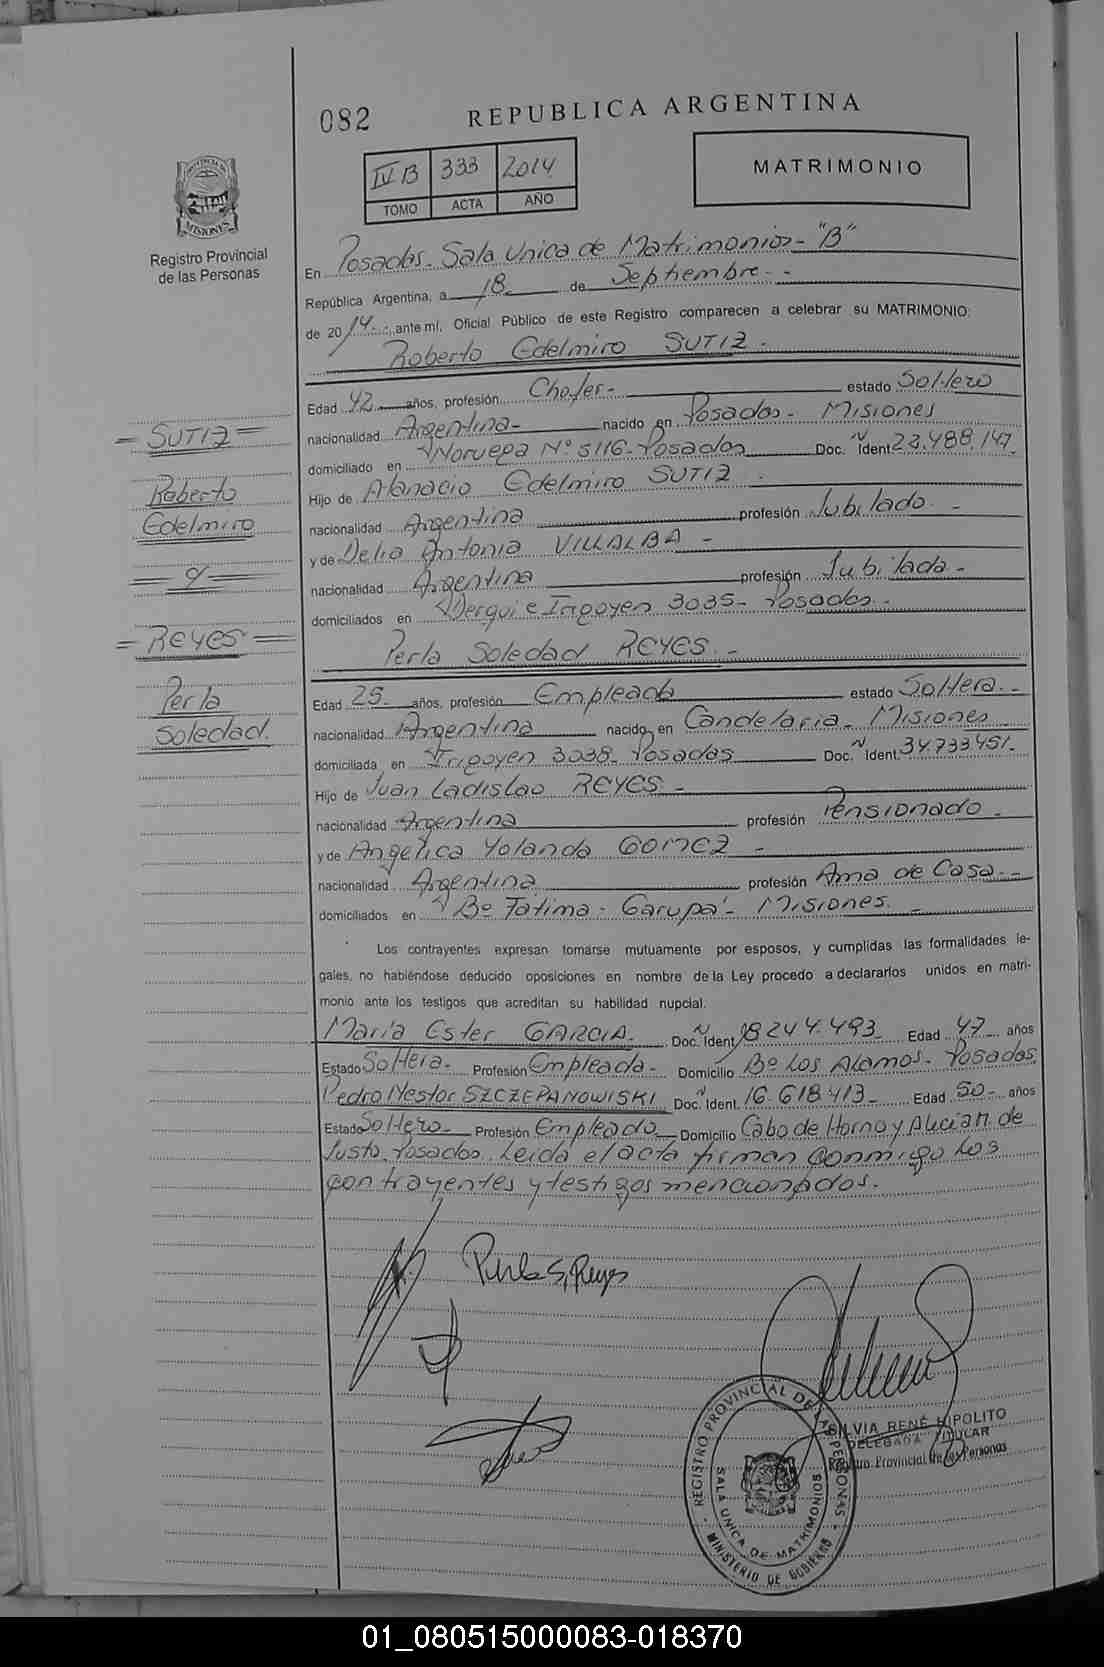 082
REPUBLICA ARGENTINA
IV B 333 2014
TOMO ACTA AÑO
MATRIMONIO
PROVINCIA DE MISIONES
Registro Provincial
de las Personas
En Posadas- Sala Unica de Matrimonios- "B"
República Argentina, a 18 de Septiembre- -
de 2014.- ante mí, Oficial Público de este Registro comparecen a celebrar su MATRIMONIO:
Roberto Edelmiro SUTIZ.
Edad 42 años, profesión Chofer- estado Soltero
nacionalidad Argentina- nacido en Posadas- Misiones
domiciliado en Noruega Nº 5116- Posadas Doc. N Ident 23.488.147-
Hijo de Atanacio Edelmiro SUTIZ.
nacionalidad Argentina profesión Jubilado. -
y de Delia Antonia VILLALBA -
nacionalidad Argentina profesión Jubilada-
domiciliados en Derqui e Irigoyen 3035- Posadas-
Perla Soledad REYES. -
Edad 25- años, profesión Empleada estado Soltera.-
nacionalidad Argentina nacido en Candelaria- Misiones
domiciliada en Irigoyen 3038- Posadas Doc. N Ident. 34.733.451-
Hijo de Juan Ladislao REYES. -
nacionalidad Argentina profesión Pensionado -
y de Angelica Yolanda GOMEZ -
nacionalidad Argentina profesión Ama de Casa.-
domiciliados en Bº Fatima- Garupá- Misiones. -
= SUTIZ =
Roberto
Edelmiro
= y =
= REYES =
Perla
Soledad.
Los contrayentes expresan tomarse mutuamente por esposos, y cumplidas las formalidades le-
gales, no habiéndose deducido oposiciones en nombre de la Ley procedo a declararlos unidos en matri-
monio ante los testigos que acreditan su habilidad nupcial.
Maria Ester GARCIA- Doc. N Ident 18244.493- Edad 47 años
Estado Soltera- Profesión Empleada- Domicilio Bº Los Alamos- Posadas
Pedro Nestor SZCZEPANOWISKI Doc. N Ident. 16.618.413- Edad 50- años
Estado Soltero- Profesión Empleado Domicilio Cabo de Hornos y Alicia M. de
Justo. Posadas. Leida el acta firman conmigo los
contrayentes y testigos mencionados.
Perla S, Reyes
SILVIA RENÉ HIPOLITO
DELEGADA TITULAR
Registro Provincial de las Personas
REGISTRO PROVINCIAL DE LAS PERSONAS
SALA UNICA DE MATRIMONIOS
MINISTERIO DE GOBIERNO
01_080515000083-018370